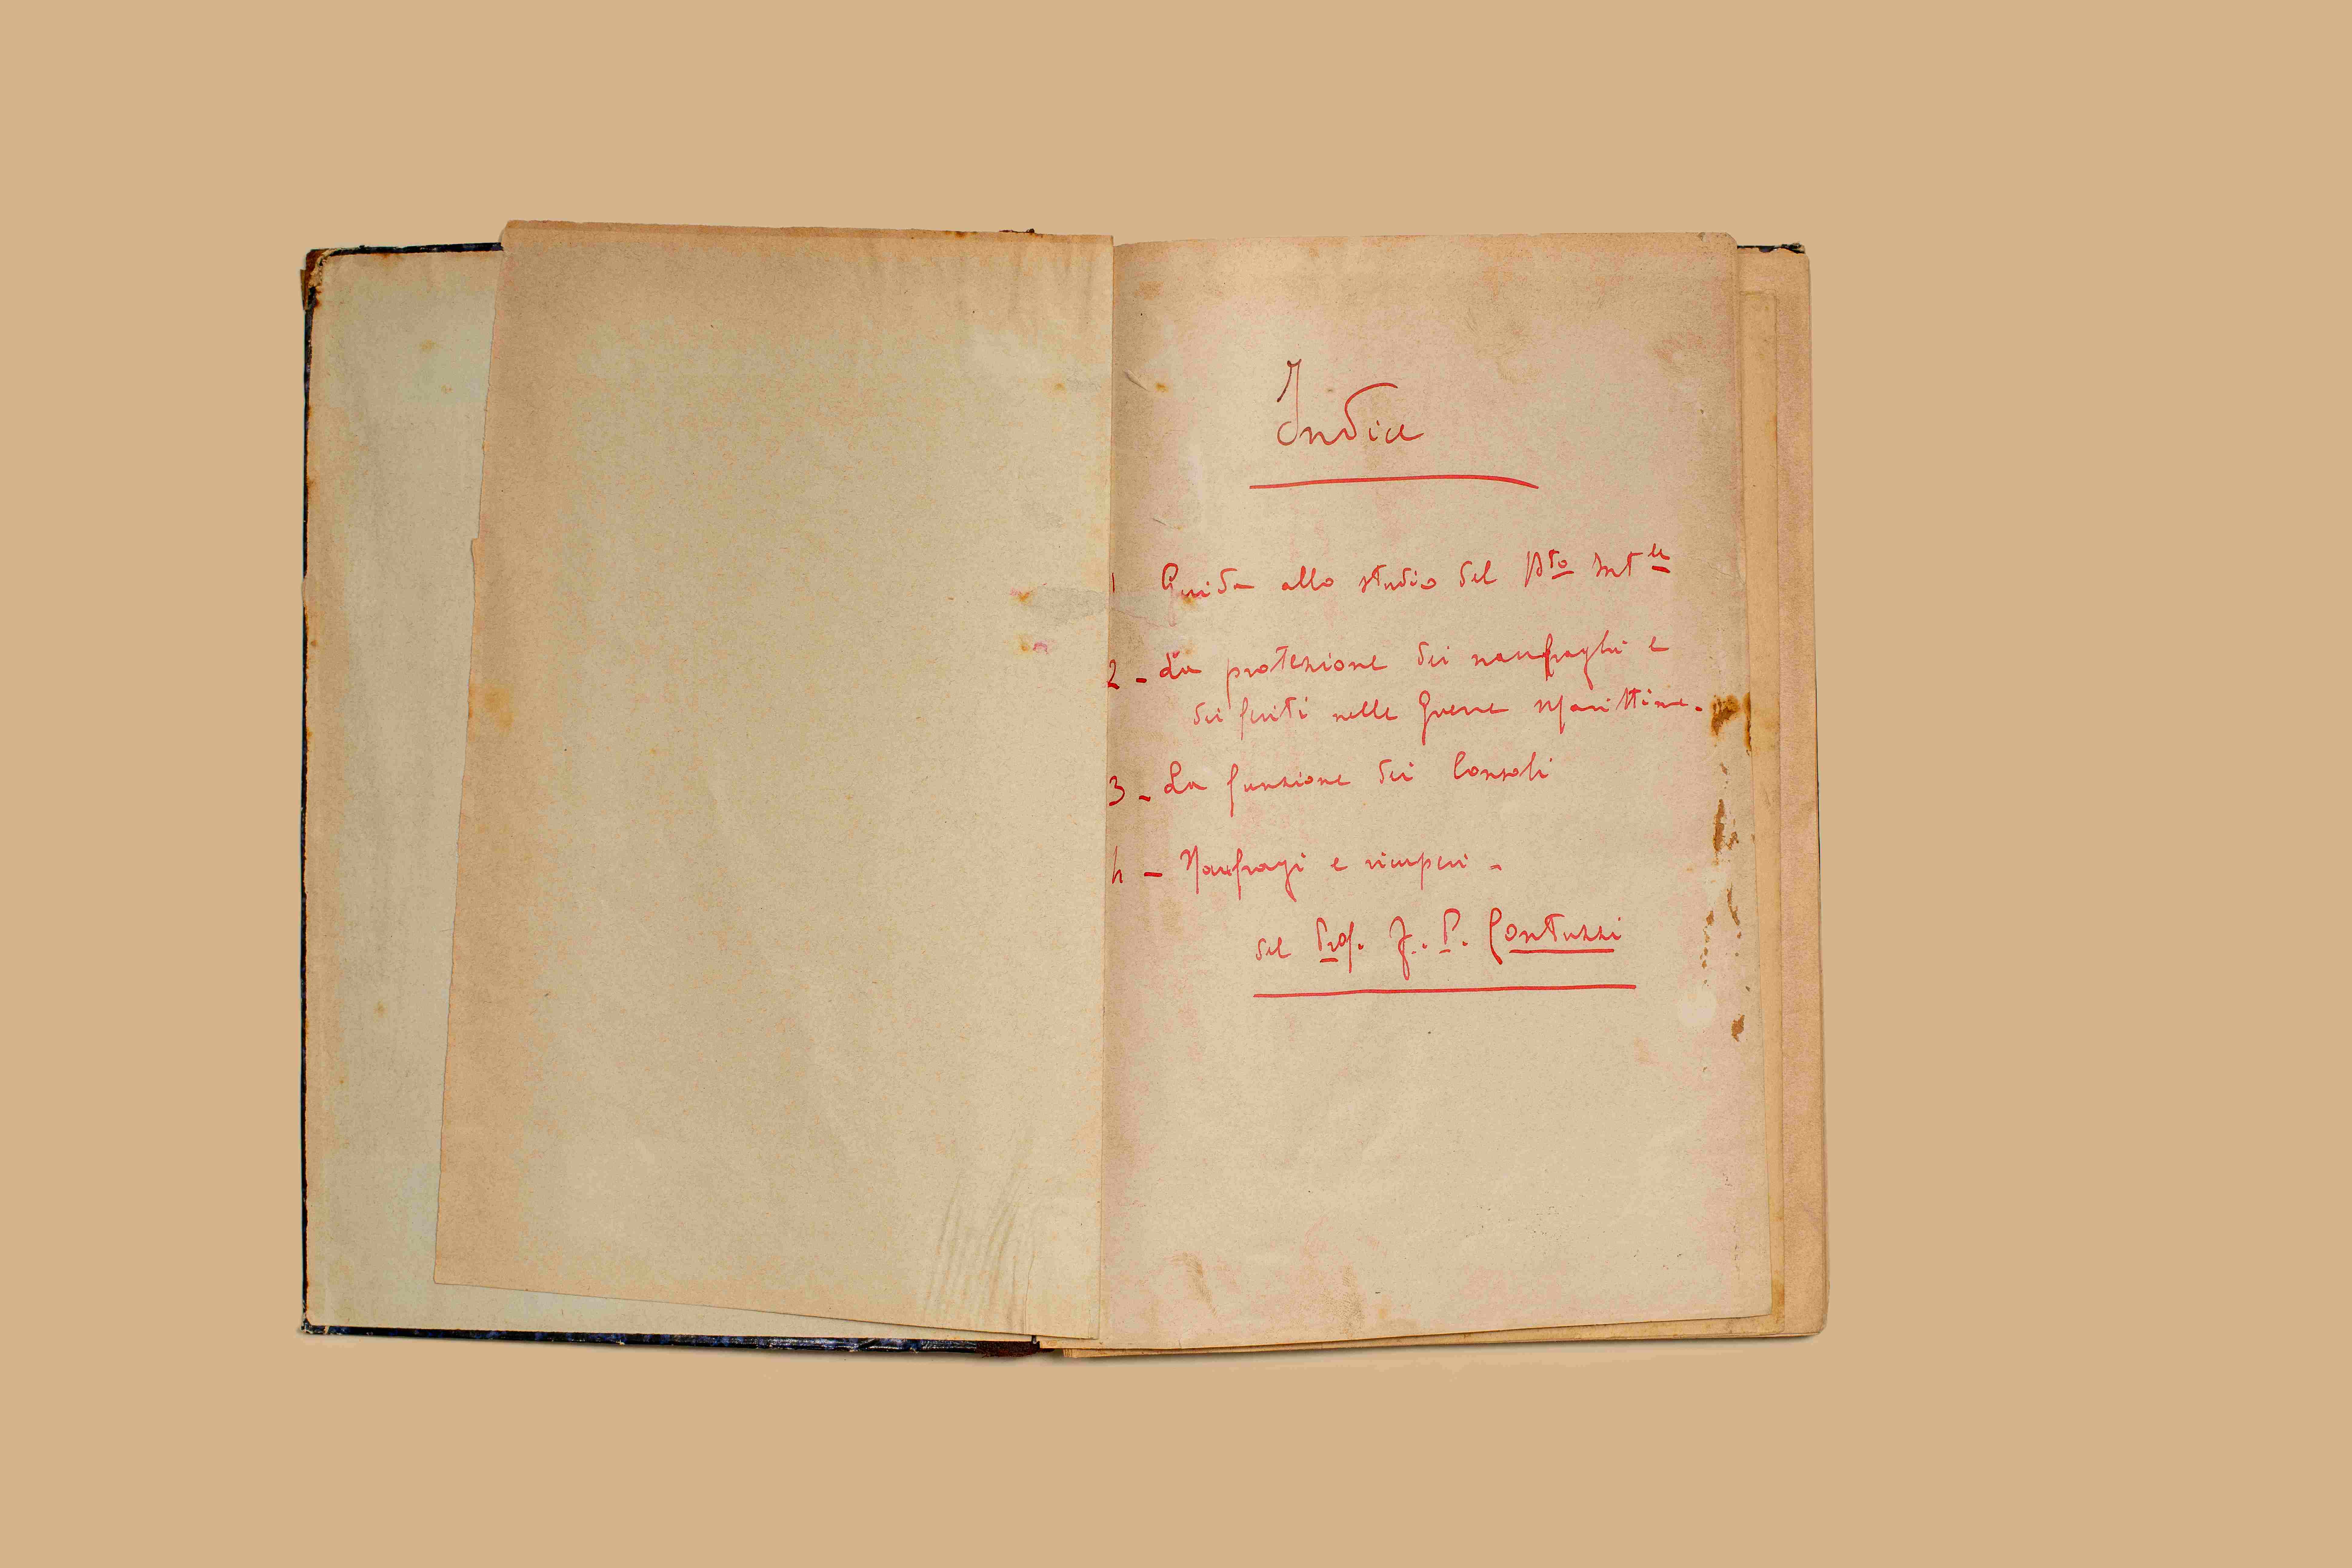 Indice
1 Guida allo studio del Dto Intle
2 - La protezione dei naufraghi e
dei feriti nelle Guerre Marittime.
3 - La funzione dei Consoli
4 - Naufragi e ricuperi -
del Prof. F. P. Contuzzi